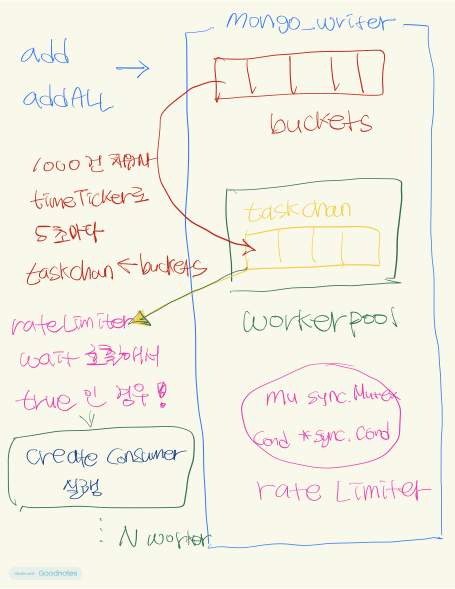 mongo_writer
add
addALL
buckets
1000건 처음시
timeTicker로
5초마다
taskchan ← buckets
taskchan
workerpool
rateLimiter
wait 호출해서
true 인 경우!
mu sync.Mutex
Cond *sync.Cond
rate Limiter
create consumer
실행
N worker
Made with Goodnotes